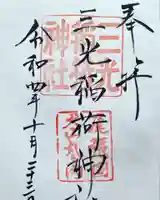 奉拝
三光稲荷神社
三光稲荷神社
令和四年十月二十三日